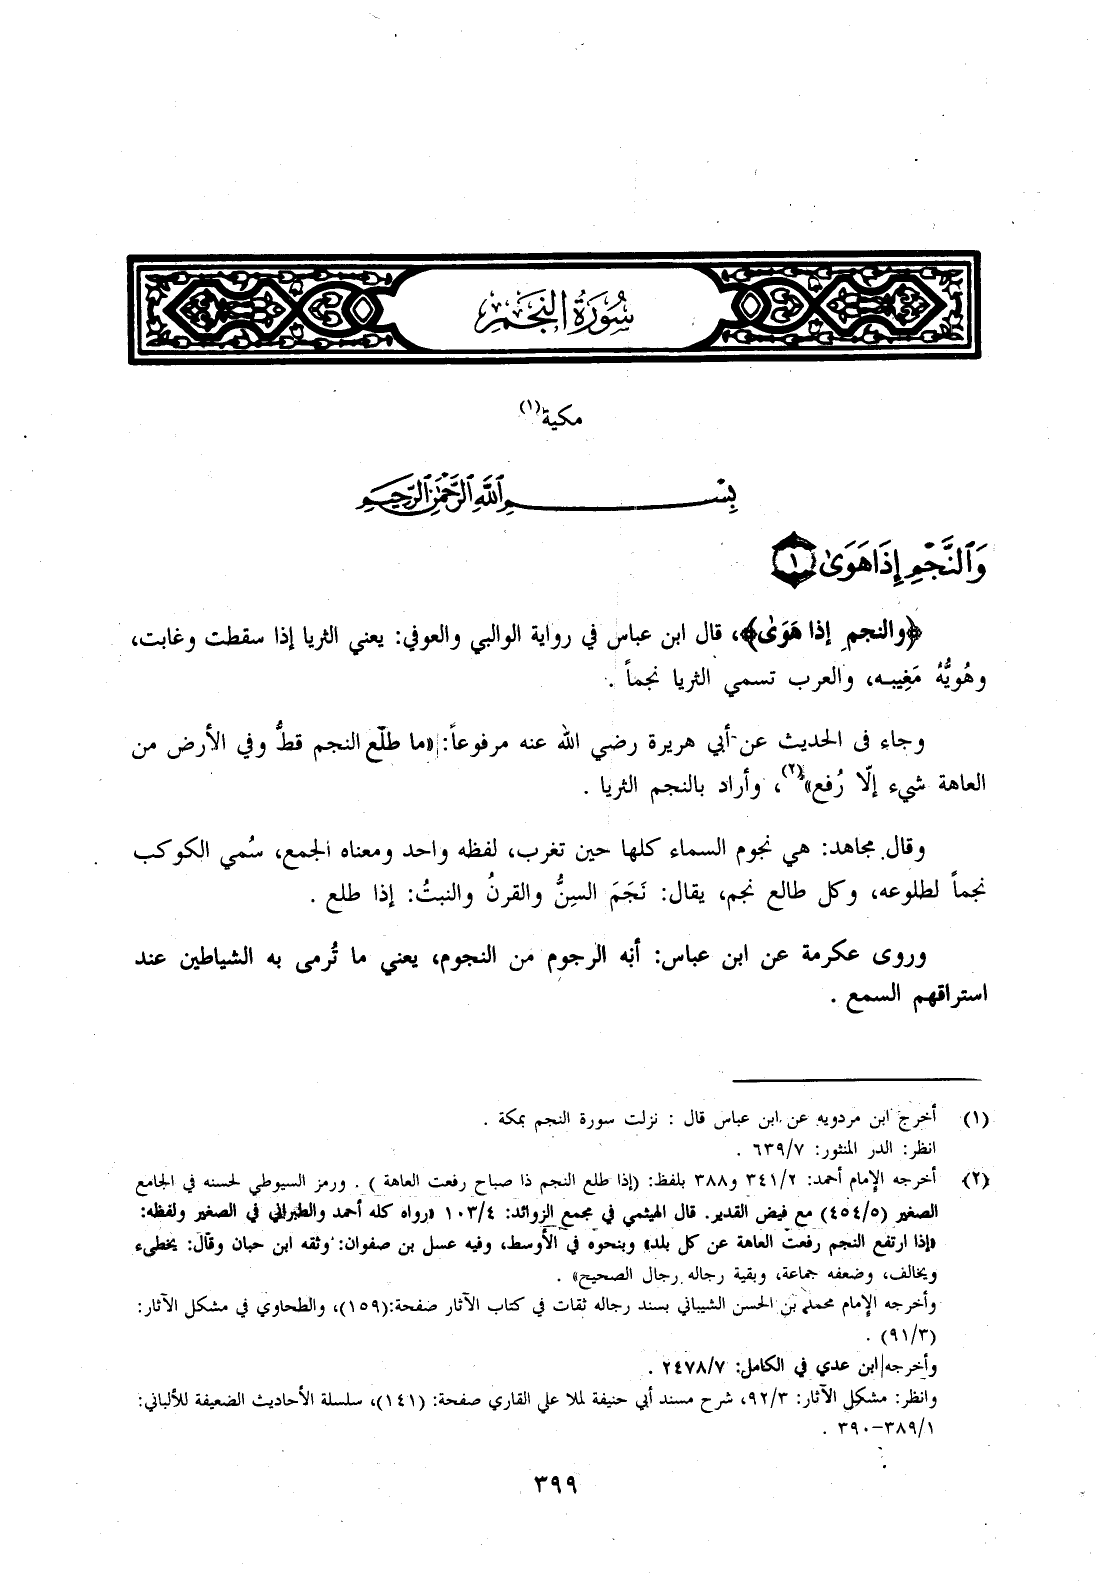 سُورَةُ النَّجْمِ
مكية(١)
بِسْمِ اللَّهِ الرَّحْمَٰنِ الرَّحِيمِ
وَٱلنَّجْمِ إِذَا هَوَىٰ ١
﴿والنجمِ إذا هَوَىٰ﴾، قال ابن عباس في رواية الوالبي والعوفي: يعني الثريا إذا سقطت وغابت،
وهُويُّهُ مَغِيبـه، والعرب تسمي الثريا نجماً .
وجاء في الحديث عن أبي هريرة رضي الله عنه مرفوعاً: «ما طلَع النجم قطُّ وفي الأرض من
العاهة شيء إلّا رُفع»(٢)، وأراد بالنجم الثريا .
وقال مجاهد: هي نجوم السماء كلها حين تغرب، لفظه واحد ومعناه الجمع، سُمي الكوكب
نجماً لطلوعه، وكل طالع نجم، يقال: نَجَمَ السِنُّ والقرنُ والنبتُ: إذا طلع .
وروى عكرمة عن ابن عباس: أنه الرجوم من النجوم، يعني ما تُرمى به الشياطين عند
استراقهم السمع .
(١) أخرج ابن مردويه عن ابن عباس قال : نزلت سورة النجم بمكة .
انظر: الدر المنثور: ٦٣٩/٧ .
(٢) أخرجه الإمام أحمد: ٣٤١/٢ و٣٨٨ بلفظ: (إذا طلع النجم ذا صباح رفعت العاهة ) . ورمز السيوطي لحسنه في الجامع
الصغير (٤٥٤/٥) مع فيض القدير. قال الهيثمي في مجمع الزوائد: ١٠٣/٤ «رواه كله أحمد والطبراني في الصغير ولفظه:
«إذا ارتفع النجم رفعت العاهة عن كل بلد» وبنحوه في الأوسط، وفيه عسل بن صفوان: وثقه ابن حبان وقال: يخطىء
ويخالف، وضعفه جماعة، وبقية رجاله رجال الصحيح» .
وأخرجه الإمام محمد بن الحسن الشيباني بسند رجاله ثقات في كتاب الآثار صفحة:(١٥٩)، والطحاوي في مشكل الآثار:
(٩١/٣) .
وأخرجه ابن عدي في الكامل: ٢٤٧٨/٧ .
وانظر: مشكل الآثار: ٩٢/٣، شرح مسند أبي حنيفة لملا علي القاري صفحة: (١٤١)، سلسلة الأحاديث الضعيفة للألباني:
٣٨٩/١-٣٩٠ .
٣٩٩